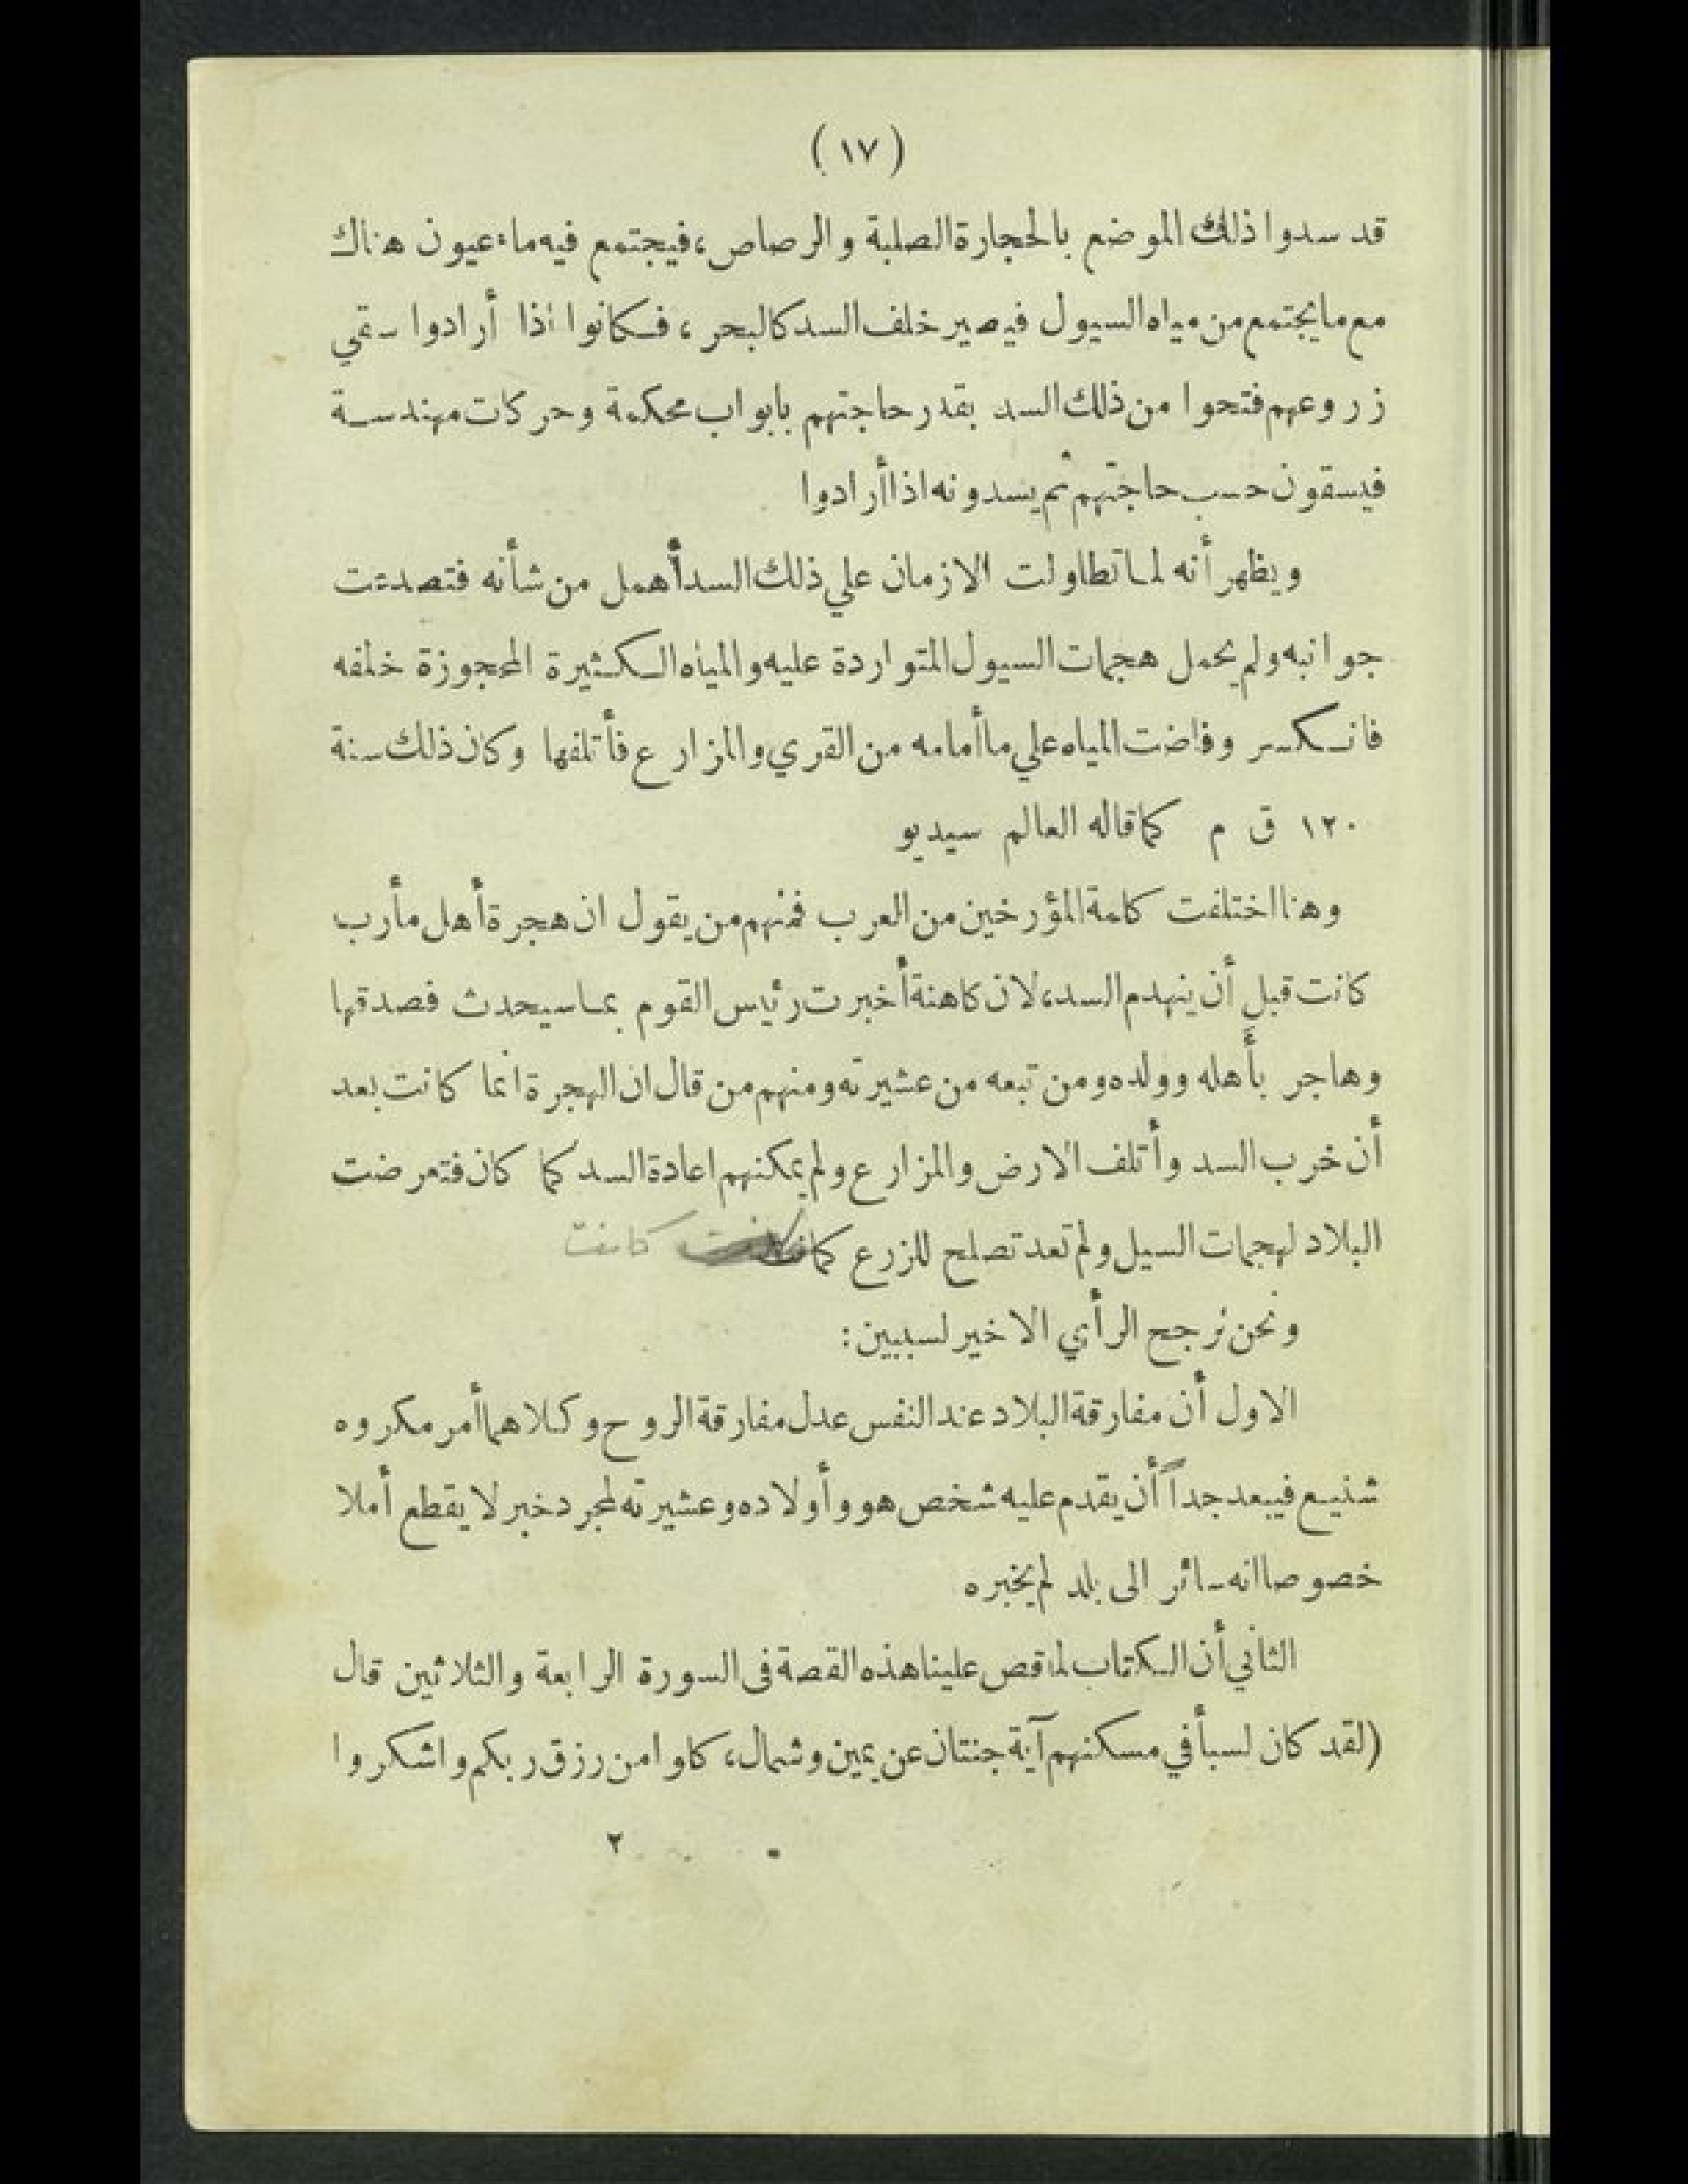 (١٧)
قد سدوا ذلك الموضع بالحجارة الصلبة والرصاص، فيجتمع فيه ماء عيون هناك
مع ما يجتمع من مياه السيول فيصير خلف السد كالبحر، فكانوا اذا أرادوا سقي
زروعهم فتحوا من ذلك السد بقدر حاجتهم بابواب محكمة وحركات مهندسة
فيسقون حسب حاجتهم ثم يسدونه اذا أرادوا
ويظهر أنه لما تطاولت الازمان علي ذلك السد أهمل من شأنه فتصدعت
جوانبه ولم يحمل هجمات السيول المتواردة عليه والمياه الكثيرة المحجوزة خلفه
فانكسر وفاضت المياه علي ما أمامه من القري والمزارع فأتلفها وكان ذلك سنة
١٢٠ ق م كما قاله العالم سيديو
وهنا اختلفت كلمة المؤرخين من العرب فمنهم من يقول ان هجرة أهل مأرب
كانت قبل أن ينهدم السد، لان كاهنة أخبرت رئيس القوم بما سيحدث فصدقها
وهاجر بأهله وولده ومن تبعه من عشيرته ومنهم من قال ان الهجرة انما كانت بعد
أن خرب السد وأتلف الارض والمزارع ولم يمكنهم اعادة السد كما كان فتعرضت
البلاد لهجمات السيل ولم تعد تصلح للزرع كما كانت
ونحن نرجح الرأي الاخير لسببين:
الاول أن مفارقة البلاد عند النفس عدل مفارقة الروح وكلاهما أمر مكروه
شنيع فيبعد جداً أن يقدم عليه شخص هو وأولاده وعشيرته لمجرد خبر لا يقطع أملا
خصوصا انه سائر الى بلد لم يخبره
الثاني أن الكتاب لما قص علينا هذه القصة فى السورة الرابعة والثلاثين قال
(لقد كان لسبأ في مسكنهم آية جنتان عن يمين وشمال، كلوا من رزق ربكم واشكروا
٢